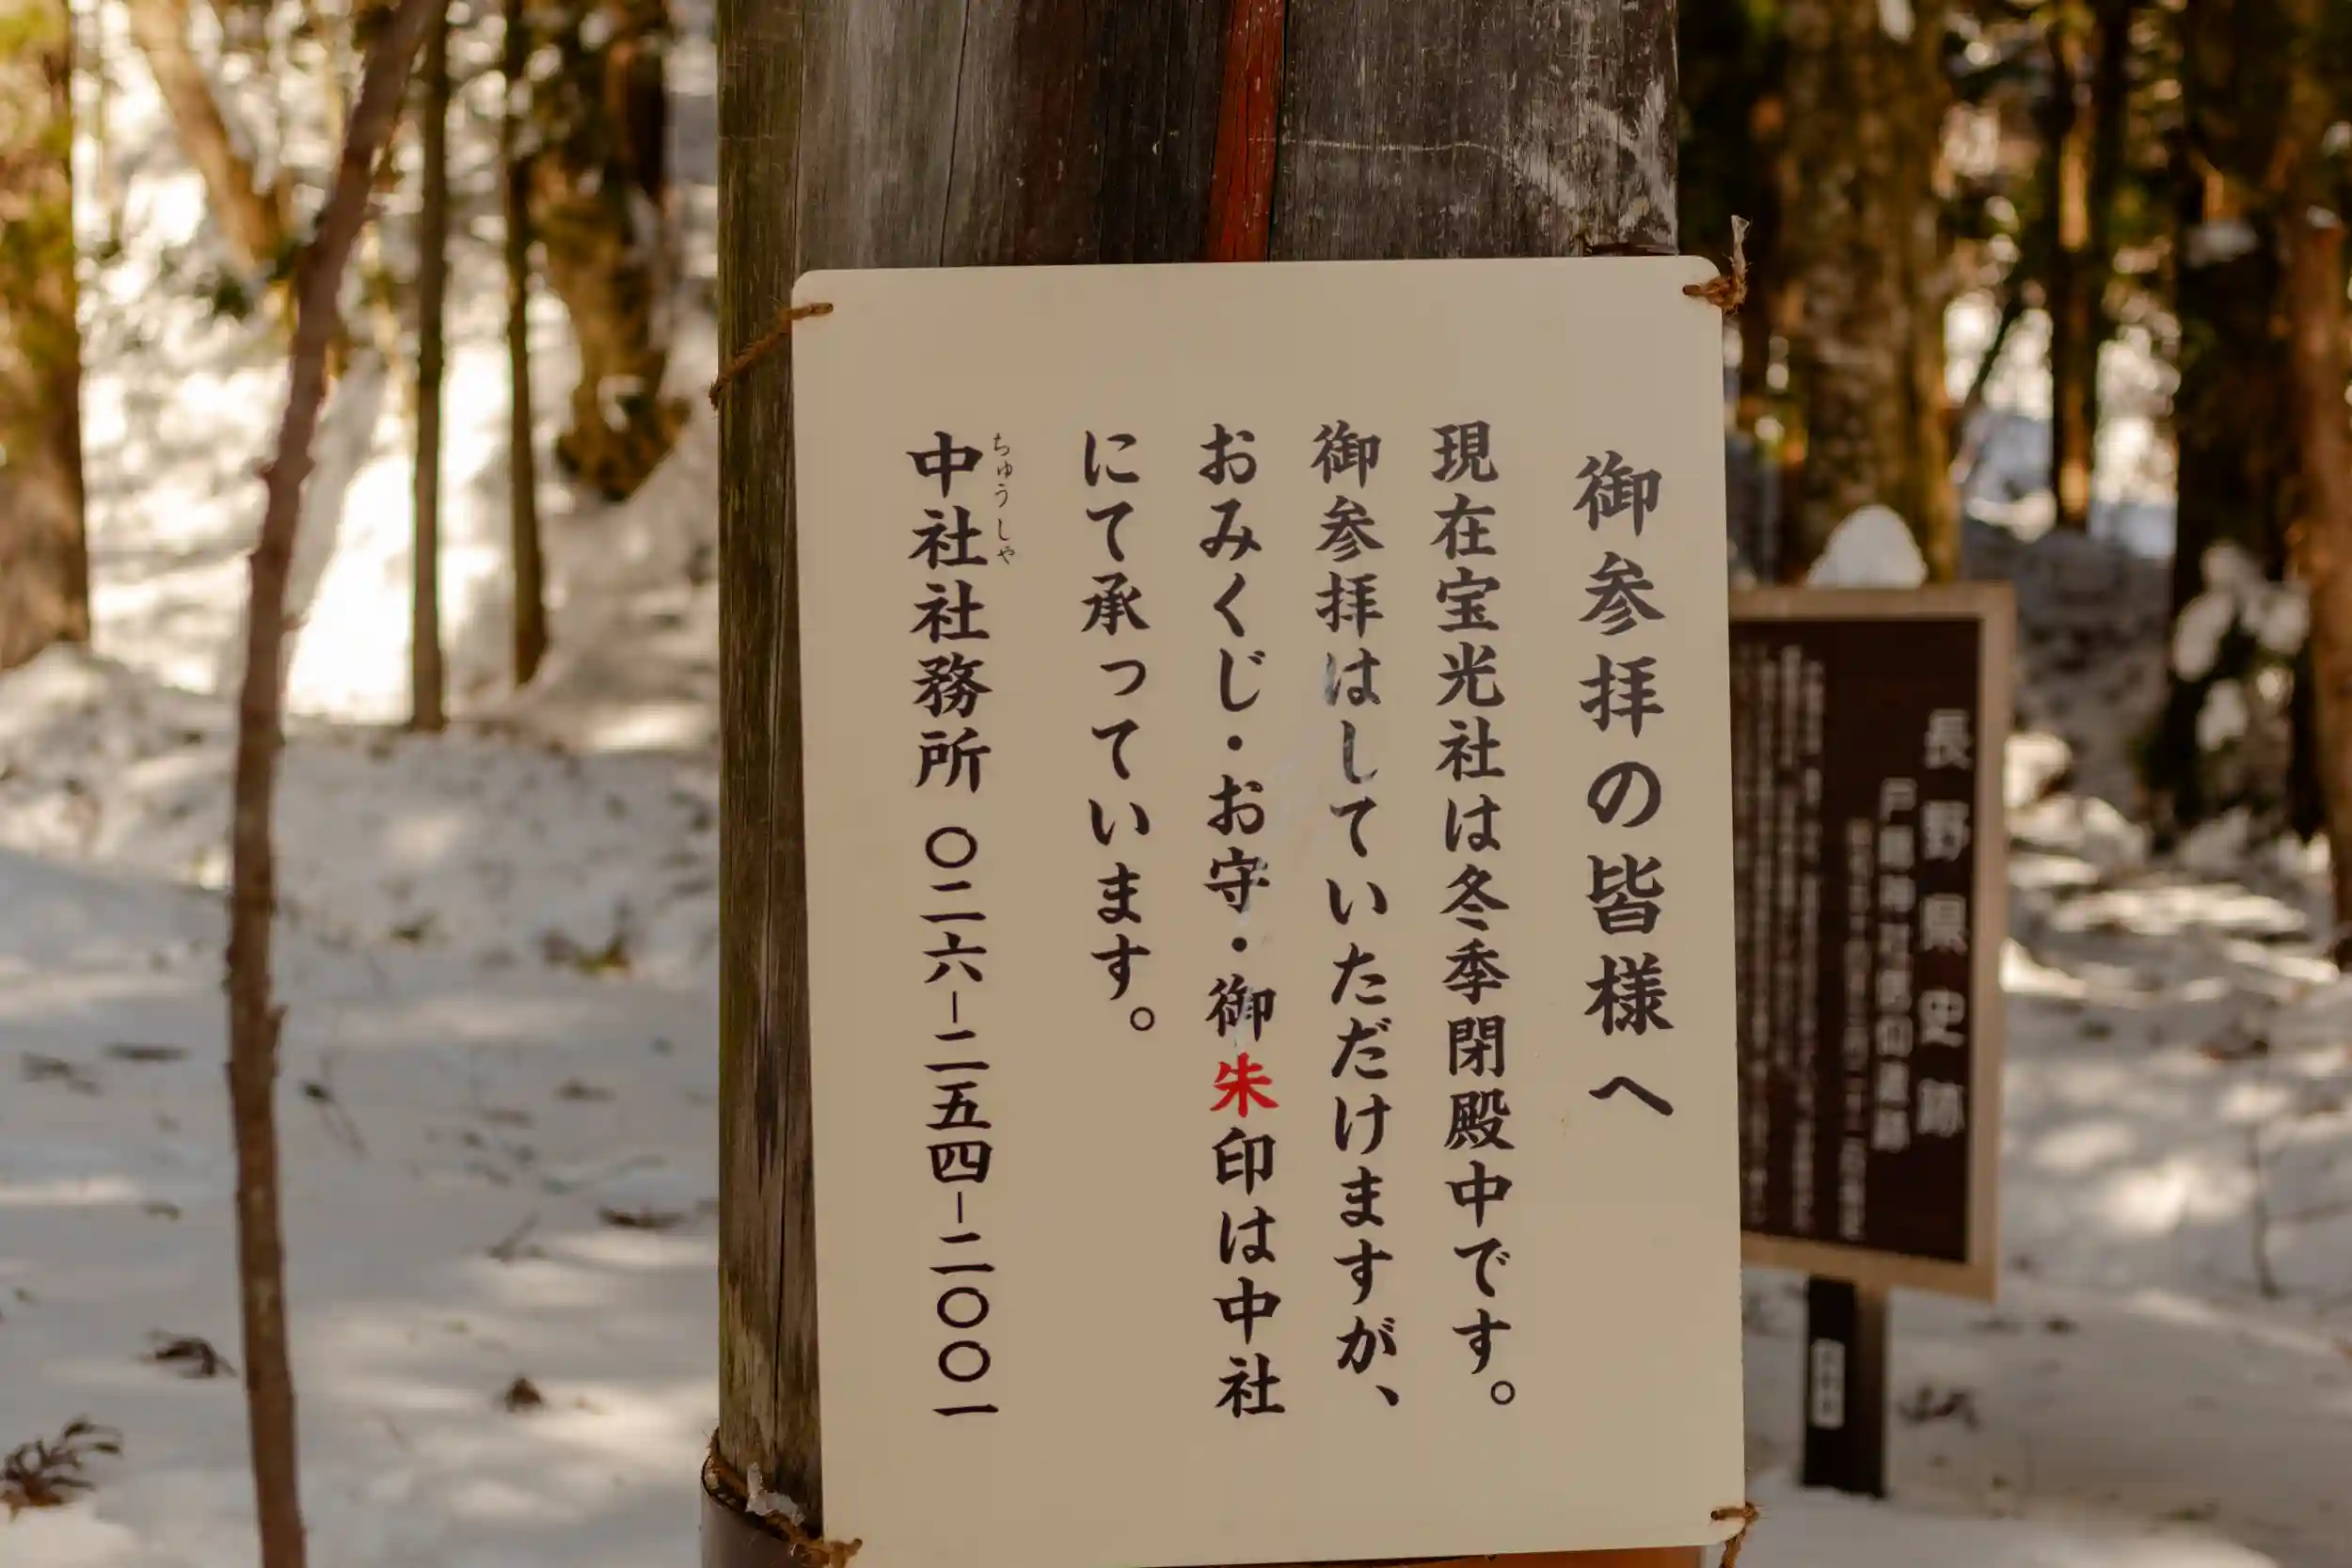 御参拝の皆様へ
現在宝光社は冬季閉殿中です。
御参拝はしていただけますが、
おみくじ・お守・御朱印は中社
にて承っています。
ちゅうしゃ
中社社務所 〇二六-二五四-二〇〇一
長野県史跡